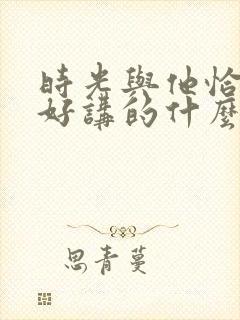 時光與他恰
好講的什麼
思青蔓